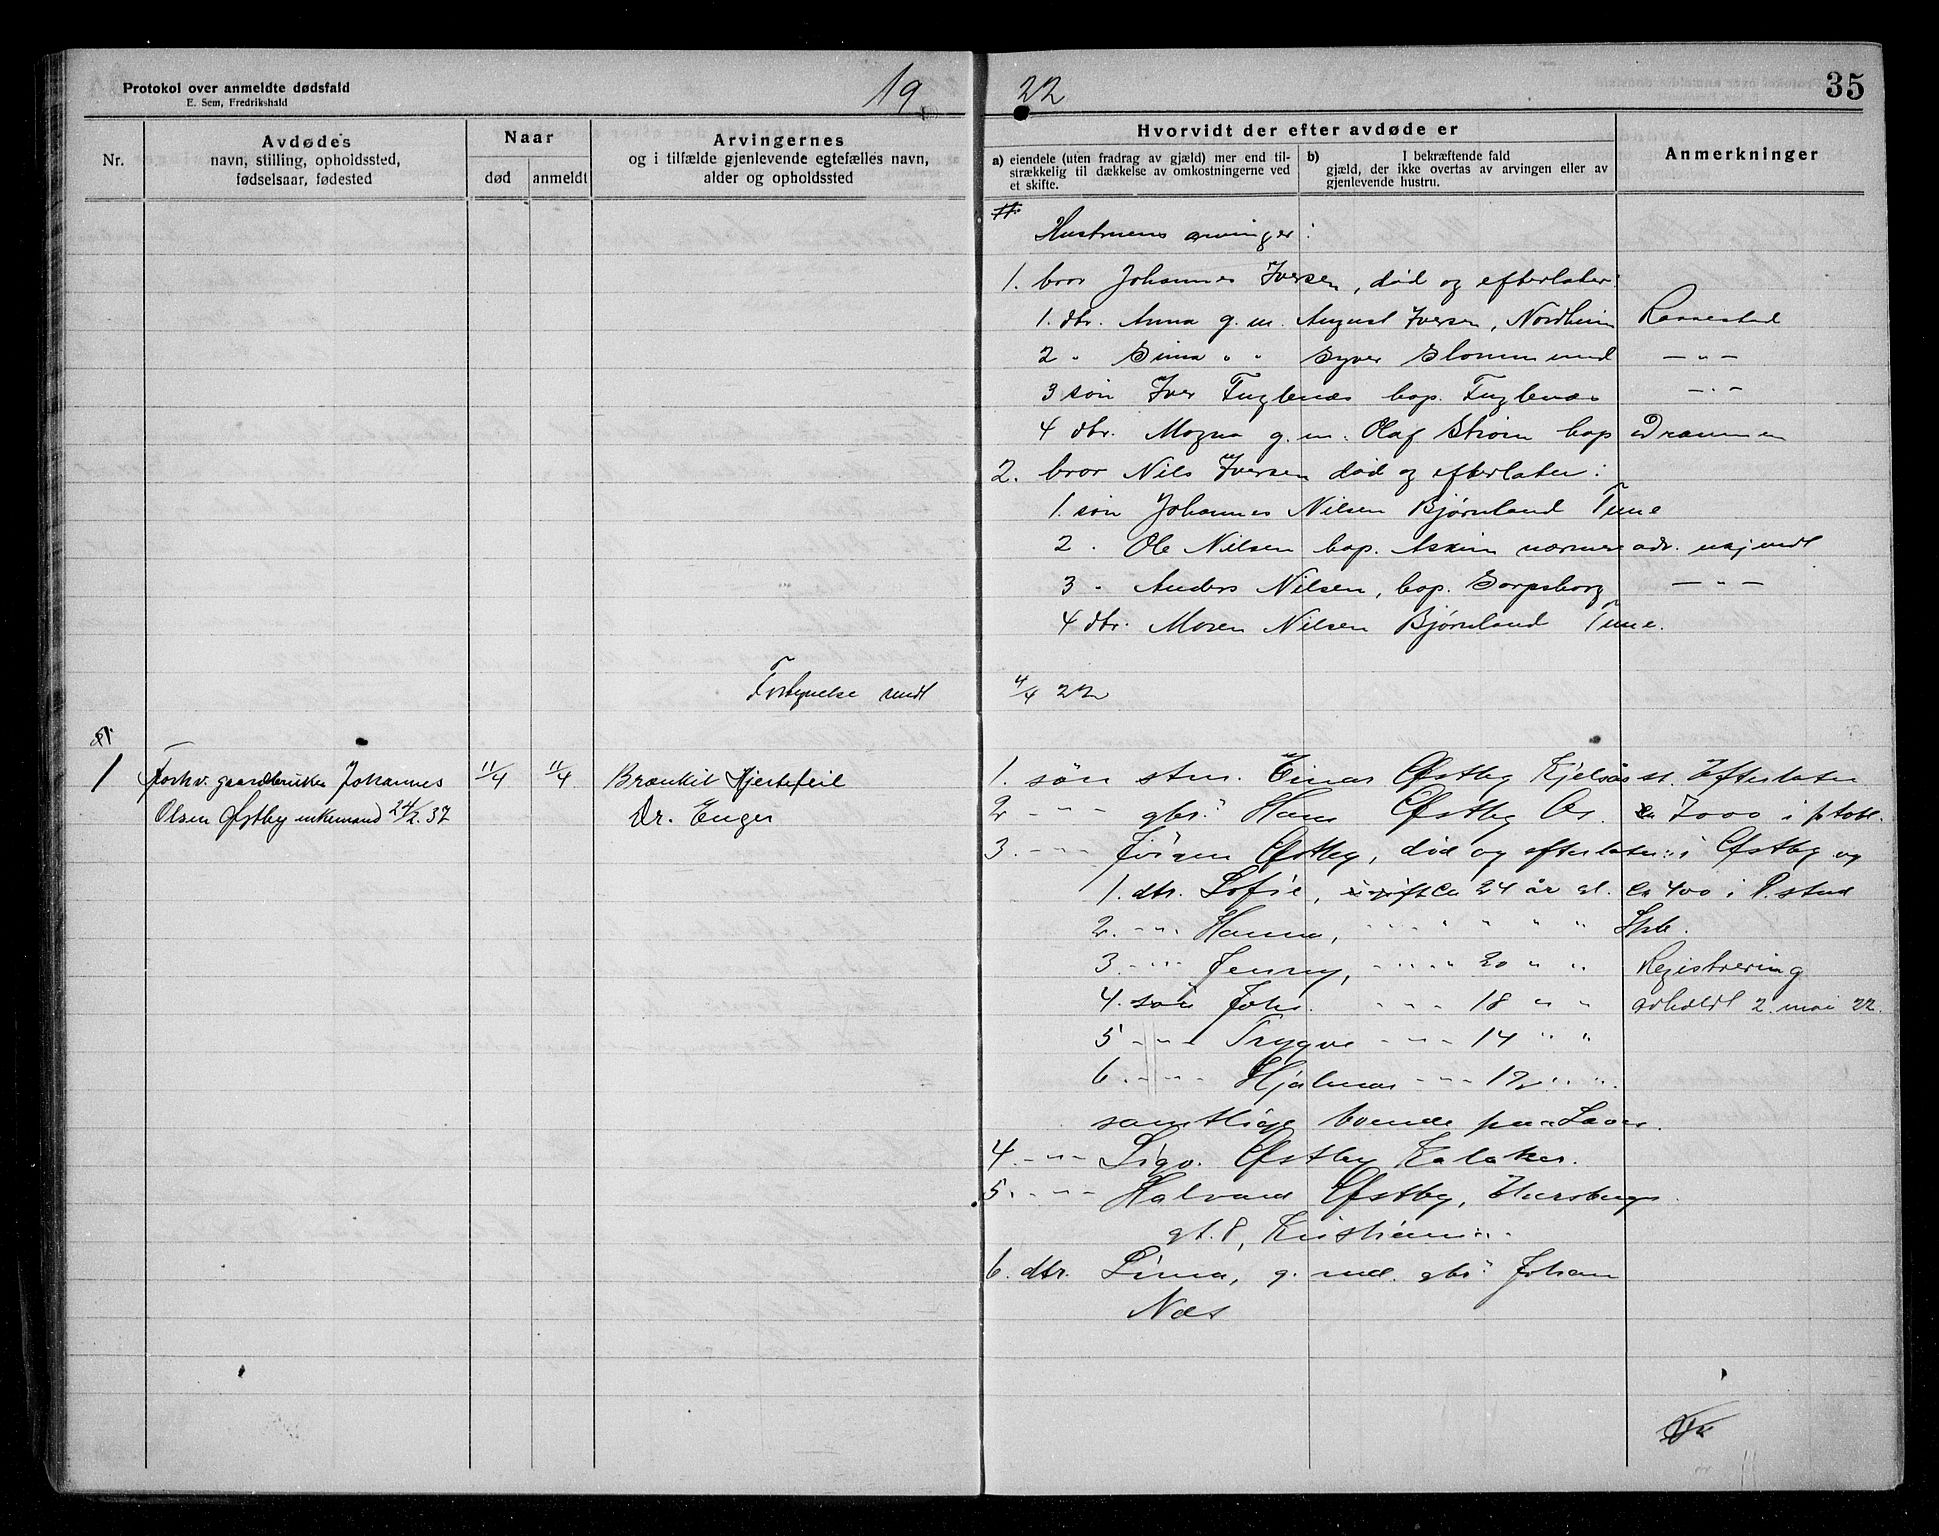 Protokol over anmeldte dødsfald
E. Sem, Fredrikshald
19
22
35
Nr.
Avdødes
navn, stilling, opholdssted,
fødselsaar, fødested
Naar
død
anmeldt
Arvingernes
og i tilfælde gjenlevende egtefælles navn,
alder og opholdssted
Hvorvidt der efter avdøde er
a) eiendele (uten fradrag av gjæld) mer end til-
strækkelig til dækkelse av omkostningerne ved
et skifte.
b) I bekræftende fald
gjæld, der ikke overtas av arvingen eller av
gjenlevende hustru.
Anmerkninger
Hustruens arvinger:
1. bror Johannes Iversen, død og efterlater:
1. dtr. Anna g. m. August Iversen, Nordheim
2 " Sina " " Syver Glommund — " —
3 søn Iver Fuglenæs bop. Fuglenæs — " —
4 dtr. Magna g. m. Olaf Strøm bop Drammen
2. bror Nils Iversen død og efterlater:
1. søn Johannes Nilsen Bjørnland Tune
2 " Ole Nilsen bop. Askim nærmere adr. ukjendt
3 " Anders Nilsen, bop. Sarpsborg — " —
4 dtr. Maren Nilsen Bjørnland Tune.
sendt
4/4 22
1 Forhv. gaardbruker Johannes 11/4 11/4
Olsen Østby enkemand 24/2. 37
Brænkit Hjertefeil
Dr. Enger
1. søn stm. Einar Østby Kjelsås st. Efterlater
2 - " - gbr. Hans Østby Os. ca 7000 i
3. - " - Jørgen Østby, død og efterlater: i Østby og
1. dtr. Sofie, ugift ca 24 år gl. ca 400 i
2. - " - Hanna, " " " " "
3. - " - Jenny, - " - " 20 " "
Registrering
4. søn Johs. " - " 18 " "
avholdt 2. mai 22.
5 - " - Trygve - " - 14 " "
6. - " - Hjalmar - " - 12 " "
samtlige boende paa
4. - " - Sigv. Østby
5. - " - Halvard Østby,
gt. 8, Kristiania.
6. dtr. Lina, g. med. gbr. Johan
Næs